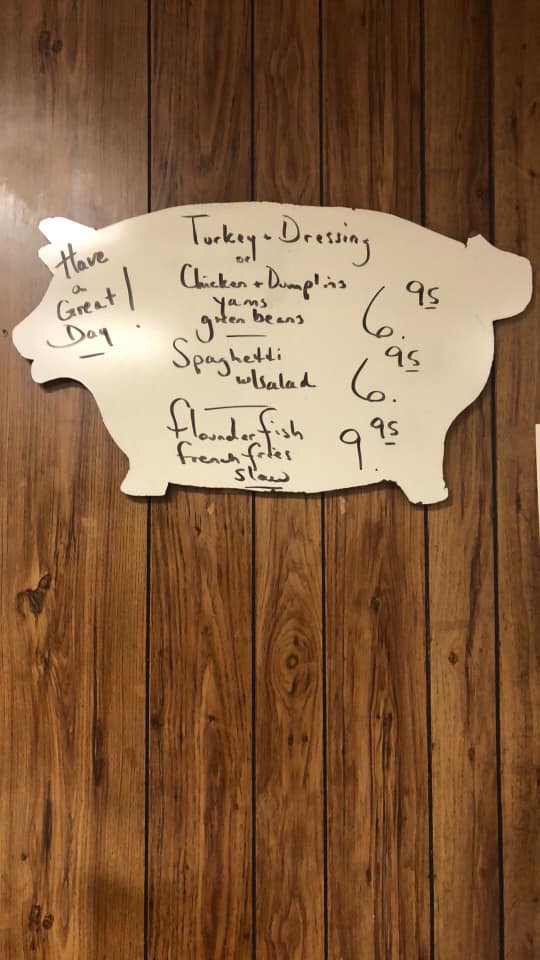 Have
a
Great!
Day
Turkey + Dressing
or
Chicken + Dumplins
yams
green beans
6.95
Spaghetti
w/salad
6.95
flounder fish
french fries
slaw
9.95